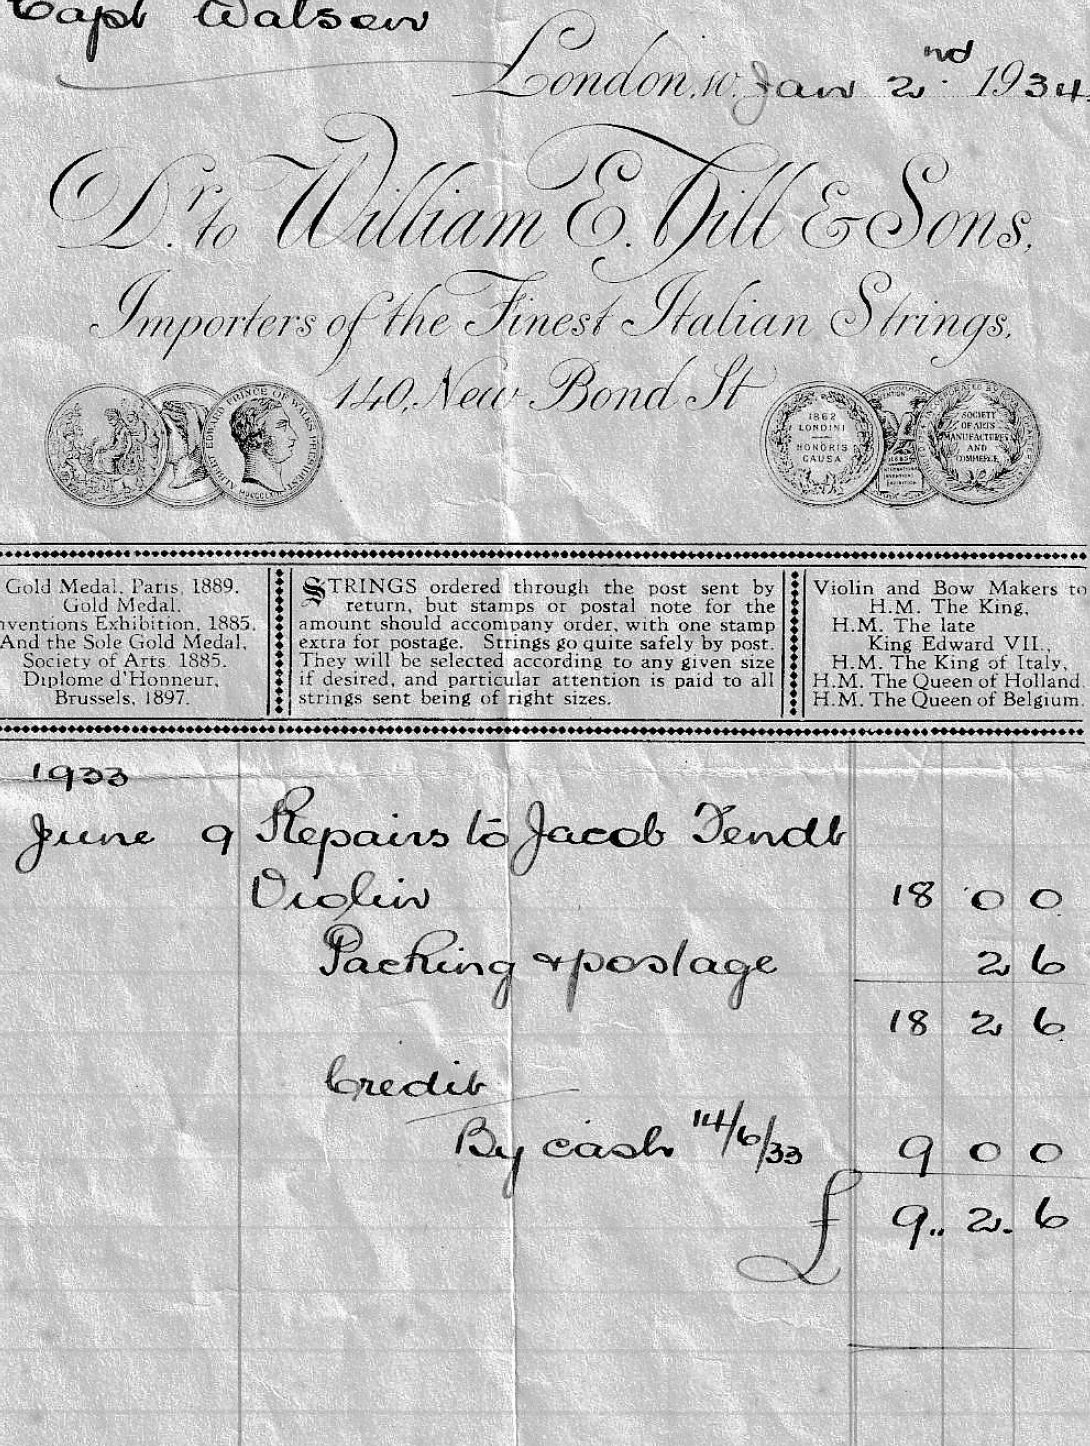 Capt Watson
London, W. Jan 2nd 1934
Dr. to William E. Hill & Sons,
Importers of the Finest Italian Strings,
140, New Bond St
ALBERT EDWARD PRINCE OF WALES PRESIDENT
1862
LONDINI
HONORIS
CAUSA
SOCIETY
OF ARTS
MANUFACTURES
AND
COMMERCE
Gold Medal, Paris, 1889.
Gold Medal,
nventions Exhibition, 1885.
And the Sole Gold Medal,
Society of Arts. 1885.
Diplome d'Honneur,
Brussels, 1897.
STRINGS ordered through the post sent by
return, but stamps or postal note for the
amount should accompany order, with one stamp
extra for postage. Strings go quite safely by post.
They will be selected according to any given size
if desired, and particular attention is paid to all
strings sent being of right sizes.
Violin and Bow Makers to
H.M. The King,
H.M. The late
King Edward VII.,
H.M. The King of Italy,
H.M. The Queen of Holland.
H.M. The Queen of Belgium.
1933
June 9 Repairs to Jacob Fendt
Violin 18 0 0
Packing & postage 2 6
18 2 6
Credit
By cash 14/6/33 9 0 0
£ 9.. 2. 6